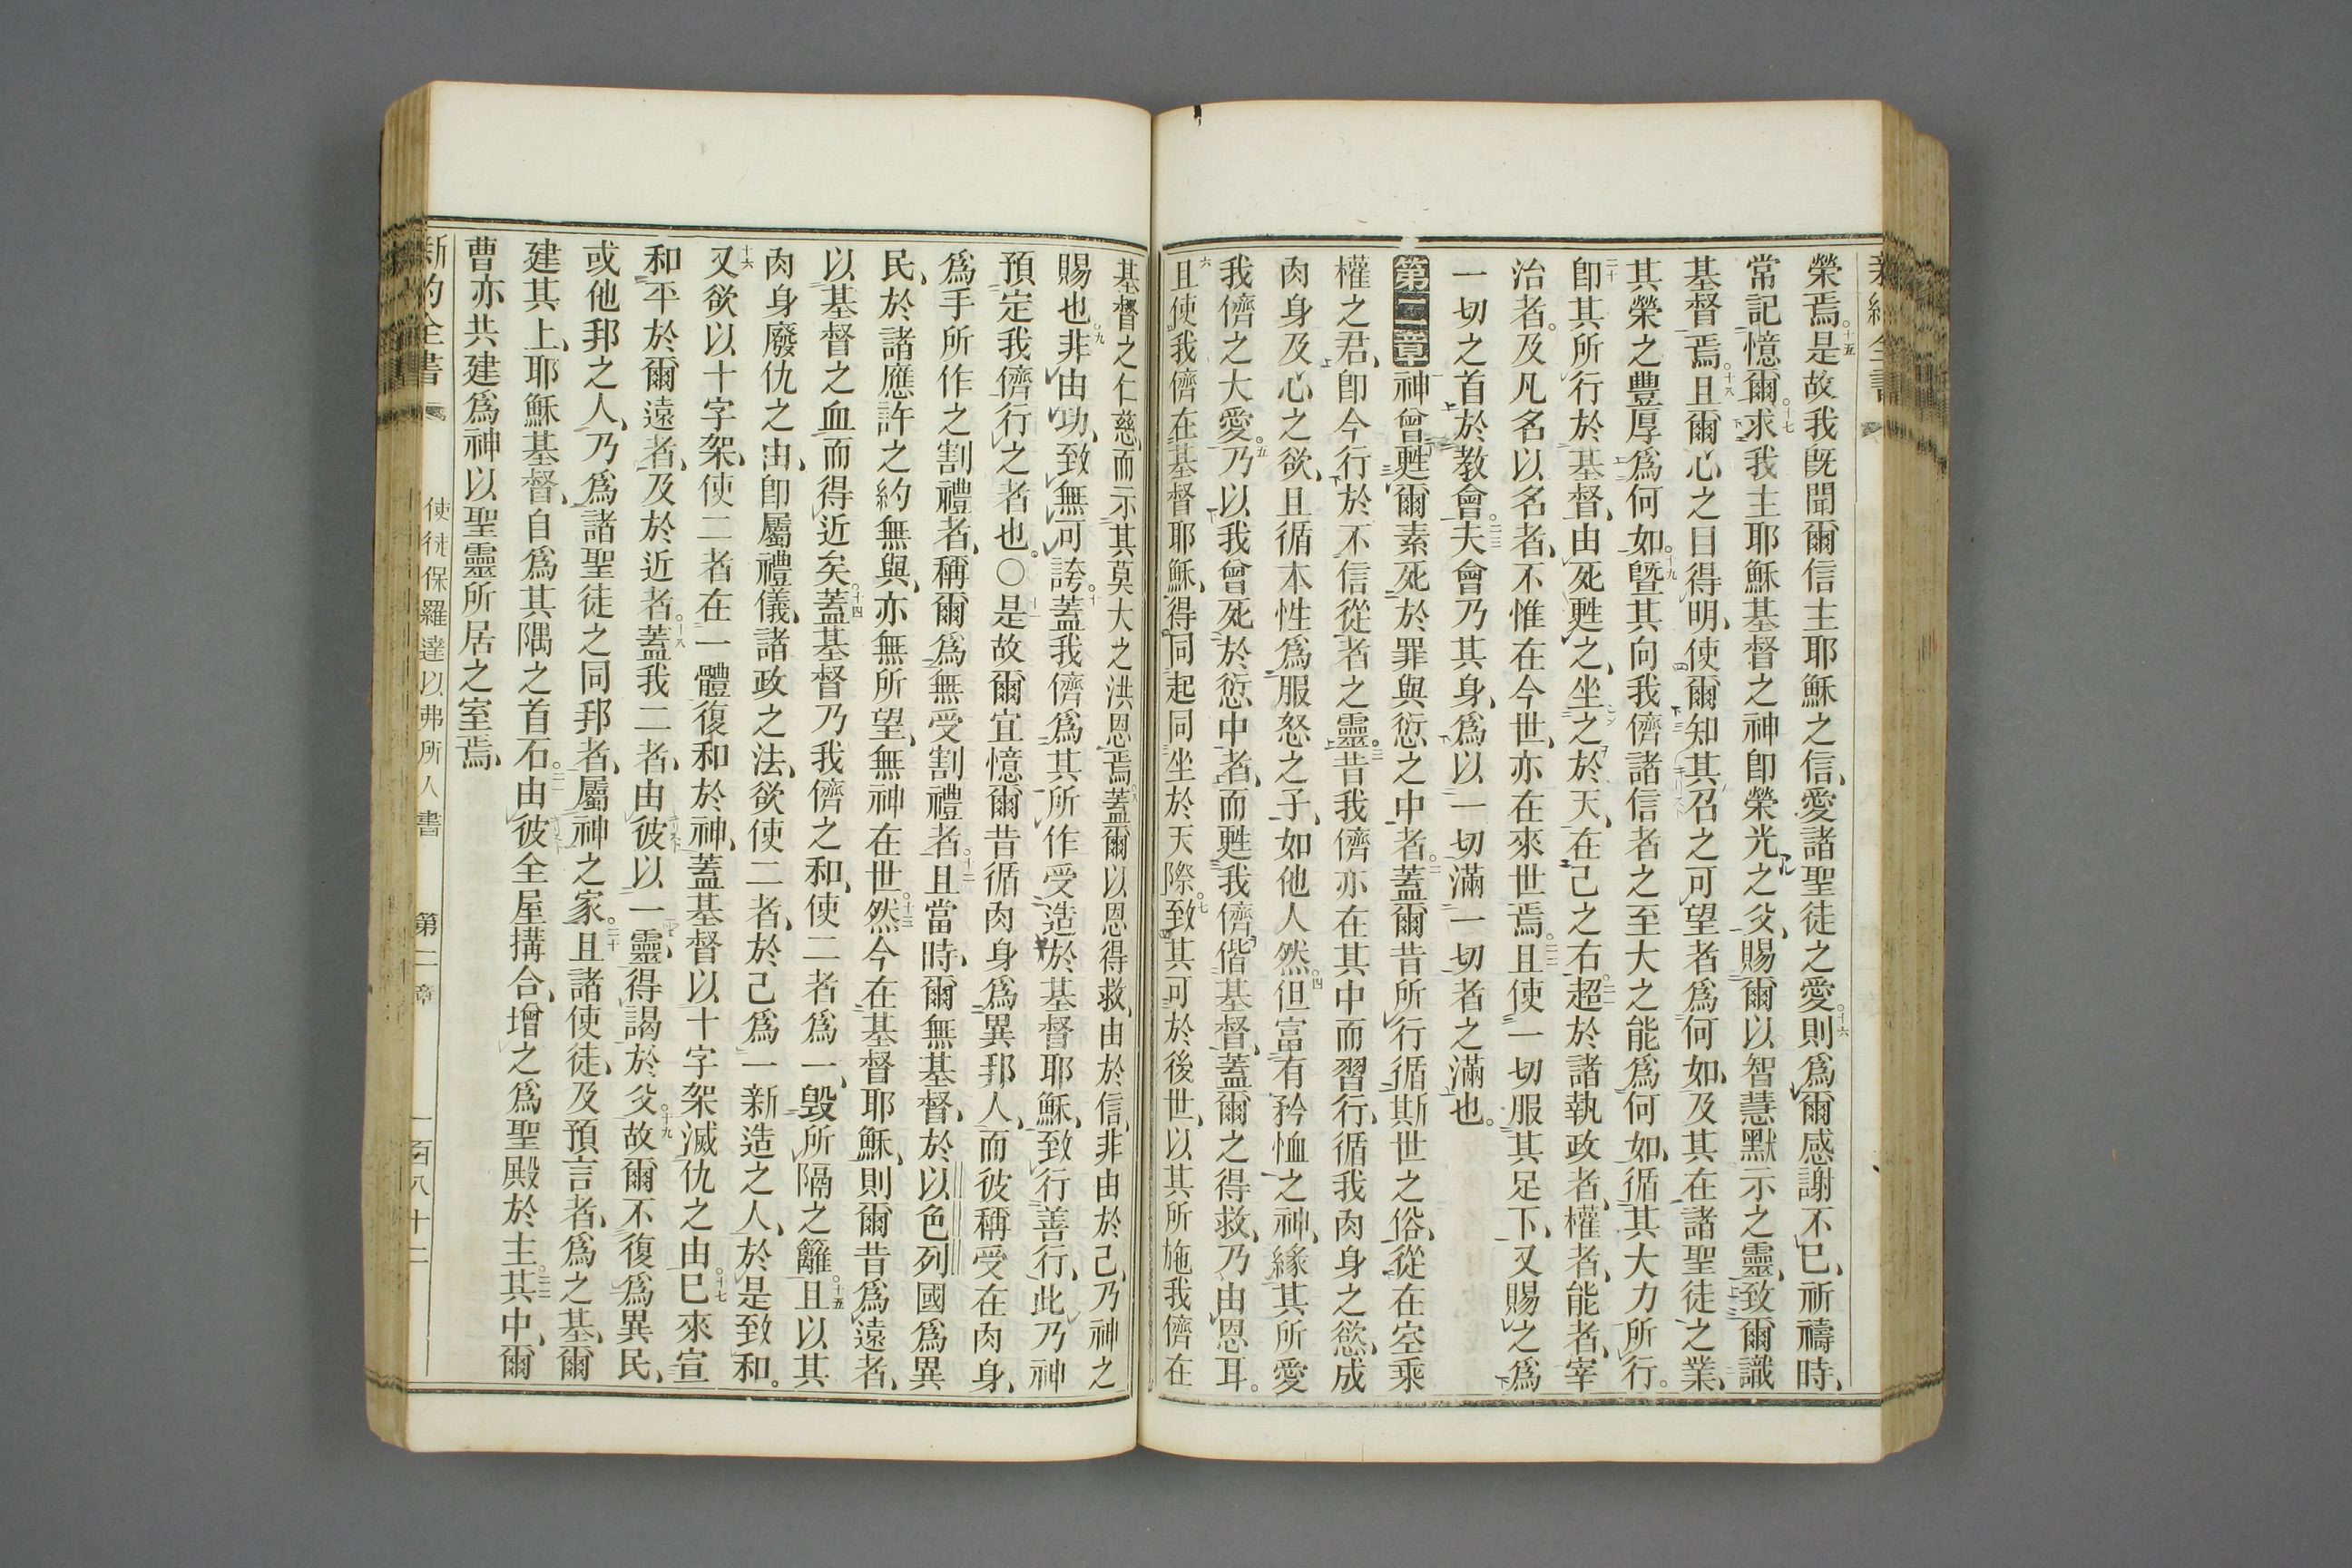 榮焉。十五是故我旣聞爾信主耶穌之信、愛諸聖徒之愛。十六則爲爾感謝不已、祈禱時、
常記憶爾。十七求我主耶穌基督之神卽榮光之父、賜爾以智慧默示之靈、致爾識
基督焉。十八且爾心之目得明、使爾知其召之可望者爲何如、及其在諸聖徒之業、
其榮之豐厚爲何如。十九曁其向我儕諸信者之至大之能爲何如、循其大力所行。
二十卽其所行於基督、由死甦之、坐之於天、在己之右。二一超於諸執政者、權者、能者、宰
治者。及凡名以名者、不惟在今世、亦在來世焉。二二且使一切服其足下、又賜之爲
一切之首於敎會。二三夫會乃其身、爲以一切滿一切者之滿也。
第二章神曾甦爾素死於罪與愆之中者。二蓋爾昔所行循斯世之俗、從在空乘
權之君、卽今行於不信從者之靈。三昔我儕亦在其中而習行、循我肉身之慾、成
肉身及心之欲、且循本性爲服怒之子、如他人然。四但富有矜恤之神、緣其所愛
我儕之大愛。五乃以我曾死於愆中者、而甦我儕偕基督、蓋爾之得救、乃由恩耳。
六且使我儕在基督耶穌、得同起同坐於天際。七致其可於後世、以其所施我儕在
基督之仁慈、而示其莫大之洪恩焉。八蓋爾以恩得救、由於信、非由於己、乃神之
賜也。九非由功、致無可誇。十蓋我儕爲其所作、受造於基督耶穌、致行善行、此乃神
預定我儕行之者也。○十一是故爾宜憶爾昔循肉身爲異邦人、而彼稱受在肉身、
爲手所作之割禮者、稱爾爲無受割禮者。十二且當時、爾無基督、於以色列國爲異
民、於諸應許之約無與、亦無所望、無神在世。十三然今在基督耶穌、則爾昔爲遠者、
以基督之血而得近矣。十四蓋基督乃我儕之和、使二者爲一、毀所隔之籬。十五且以其
肉身廢仇之由、卽屬禮儀、諸政之法、欲使二者、於己爲一新造之人、於是致和。
十六又欲以十字架、使二者在一體復和於神、蓋基督以十字架滅仇之由。十七已來宣
和平於爾遠者、及於近者。十八蓋我二者、由彼以一靈、得謁於父。十九故爾不復爲異民、
或他邦之人、乃爲諸聖徒之同邦者、屬神之家。二十且諸使徒、及預言者、爲之基、爾
建其上、耶穌基督、自爲其隅之首石。二一由彼全屋搆合、增之爲聖殿於主。二二其中、爾
曹亦共建爲神以聖靈所居之室焉、
新約全書 使徒保羅達以弗所人書 第二章 一百八十二